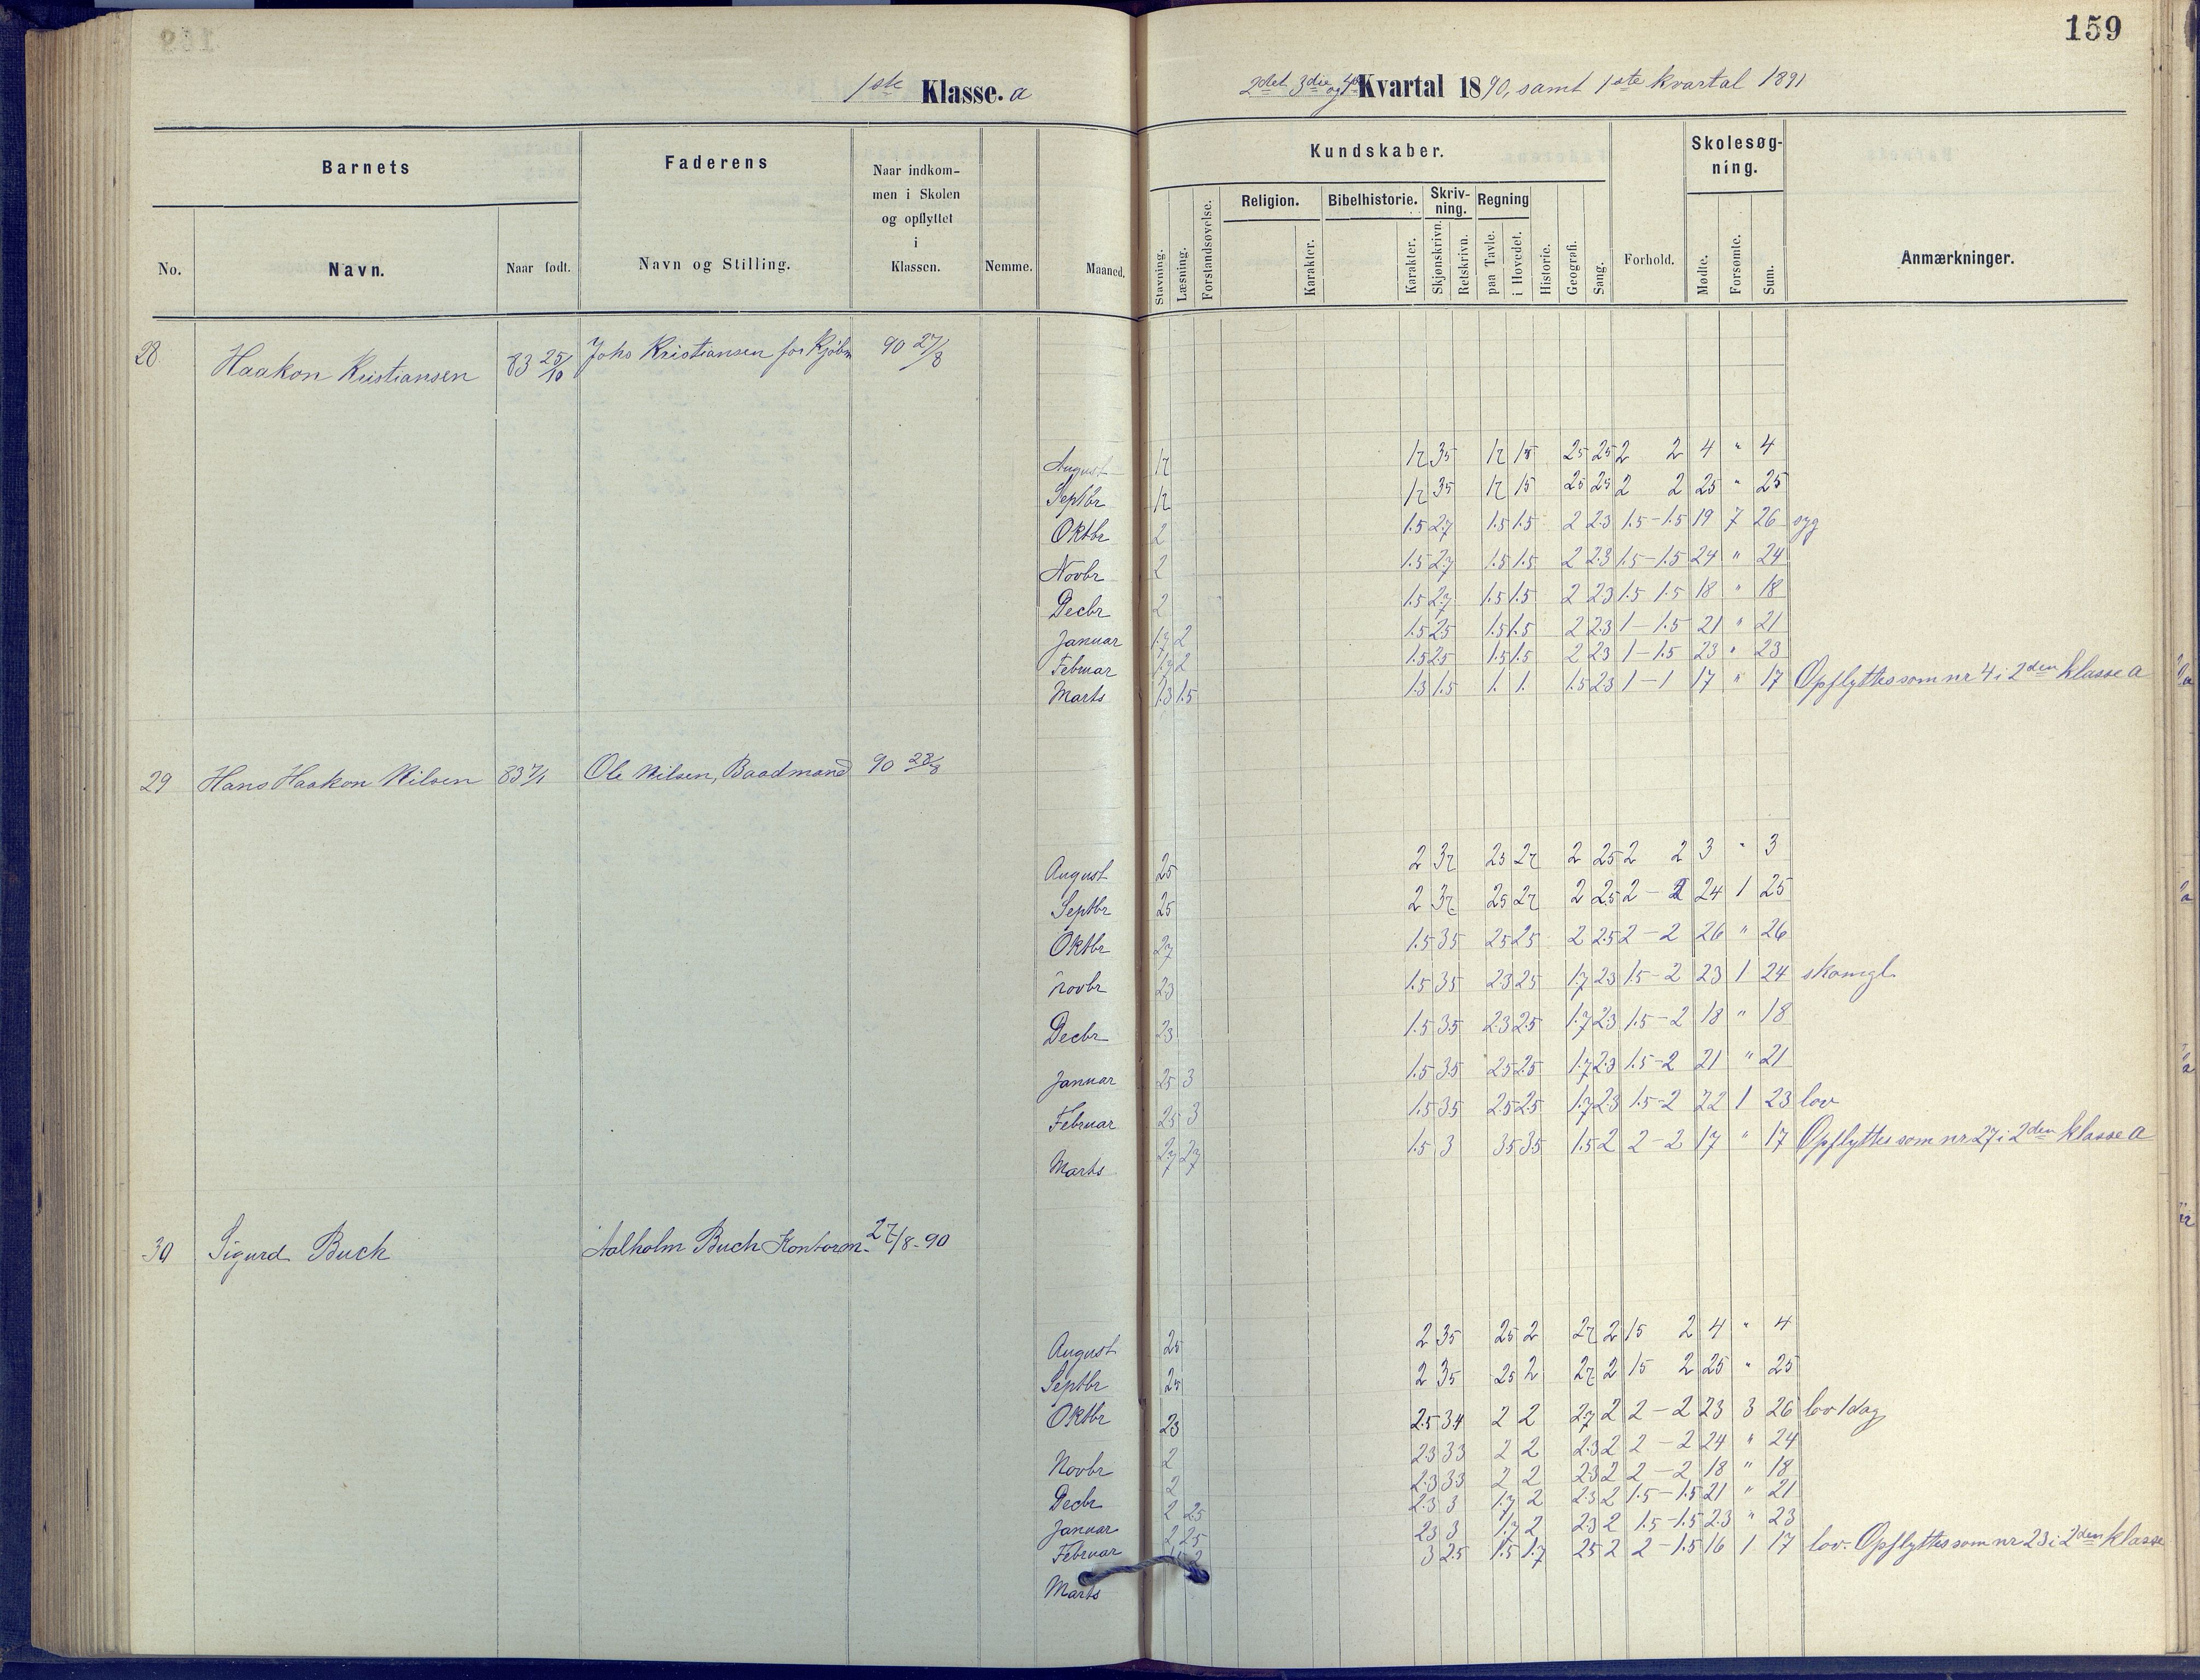 159
1ste Klasse. a
2det 3die og 4de Kvartal 1890, samt 1ste kvartal 1891
Barnets
Faderens
Naar indkommen i Skolen og opflyttet i Klassen.
Kundskaber.
Skolesøgning.
Religion. Bibelhistorie. Skrivning. Regning
No. Navn. Naar født. Navn og Stilling. Nemme. Maaned. Stavning. Læsning. Forstandsøvelse. Karakter. Karakter. Skjønskrivn. Retskrivn. paa Tavle. i Hovedet. Historie. Geografi. Sang. Forhold. Mødte. Forsømte. Sum. Anmærkninger.
28 Haakon Kristiansen 83 25/10 Johs Kristiansen 90 27/8
August 12 12 35 12 15 25 25 2 2 4 " 4
Septbr 12 12 35 12 15 25 25 2 2 25 " 25
Oktbr 2 1.5 2.7 1.5 1.5 2 2.3 1.5-1.5 19 7 26 syg
Novbr 2 1.5 2.7 1.5 1.5 2 2.3 1.5-1.5 24 " 24
Decbr 2 1.5 2.7 1.5 1.5 2 23 1.5 1.5 18 " 18
Januar 1.7 2 1.5 25 1.5 1.5 2 2.3 1-1.5 21 " 21
Februar 1.7 2 1.5 2.5 1.5 1.5 2 23 1-1.5 23 " 23
Marts 1.3 1.5 1.3 1.5 1. 1. 1.5 23 1-1 17 " 17 Opflyttes som nr 4 i 2den klasse a
29 Hans Haakon Nilsen 83 7/1 Ole Nilsen, Baadmand 90 28/8
August 25 2 37 25 27 2 25 2 2 3 " 3
Septbr 25 2 37 25 27 2 2.5 2-2 24 1 25
Oktbr 27 1.5 35 25 25 2 2.5 2-2 26 " 26
Novbr 23 1.5 35 2.3 25 1.7 2.3 1.5-2 23 1 24 skomgl.
Decbr 23 1.5 3.5 2.3 2.5 1.7 2.3 1.5-2 18 " 18
Januar 25 3 1.5 3.5 25 25 1.7 2.3 1.5-2 21 " 21
Februar 25 3 1.5 35 2.5 25 1.7 2.3 1.5-2 22 1 23 lov
Marts 27 27 1.5 3 35 35 1.5 2 2-2 17 " 17 Opflyttes som nr 27 i 2den klasse a
30 Sigurd Buch Aalholm Buch Kontorm. 27/8-90
August 25 2 35 25 2 27 2 15 2 4 " 4
Septbr 25 2 35 25 2 27 2 15 2 25 " 25
Oktbr 23 2.5 3.4 2 2 2.7 2 2-2 23 3 26 lov 1 dag
Novbr 2 23 33 2 2 2.3 2 2-2 24 " 24
Decbr 2 2.3 3.3 2 2 23 2 2-2 18 " 18
Januar 2 25 2.3 3 1.7 2 2.3 2 1.5-1.5 21 " 21
Februar 2 25 23 3 1.7 2 23 2 1.5-1.5 23 " 23
Marts 3 2.5 1.5 1.7 25 2 2-1.5 16 1 17 lov. Opflyttes som nr 23 i 2den klasse